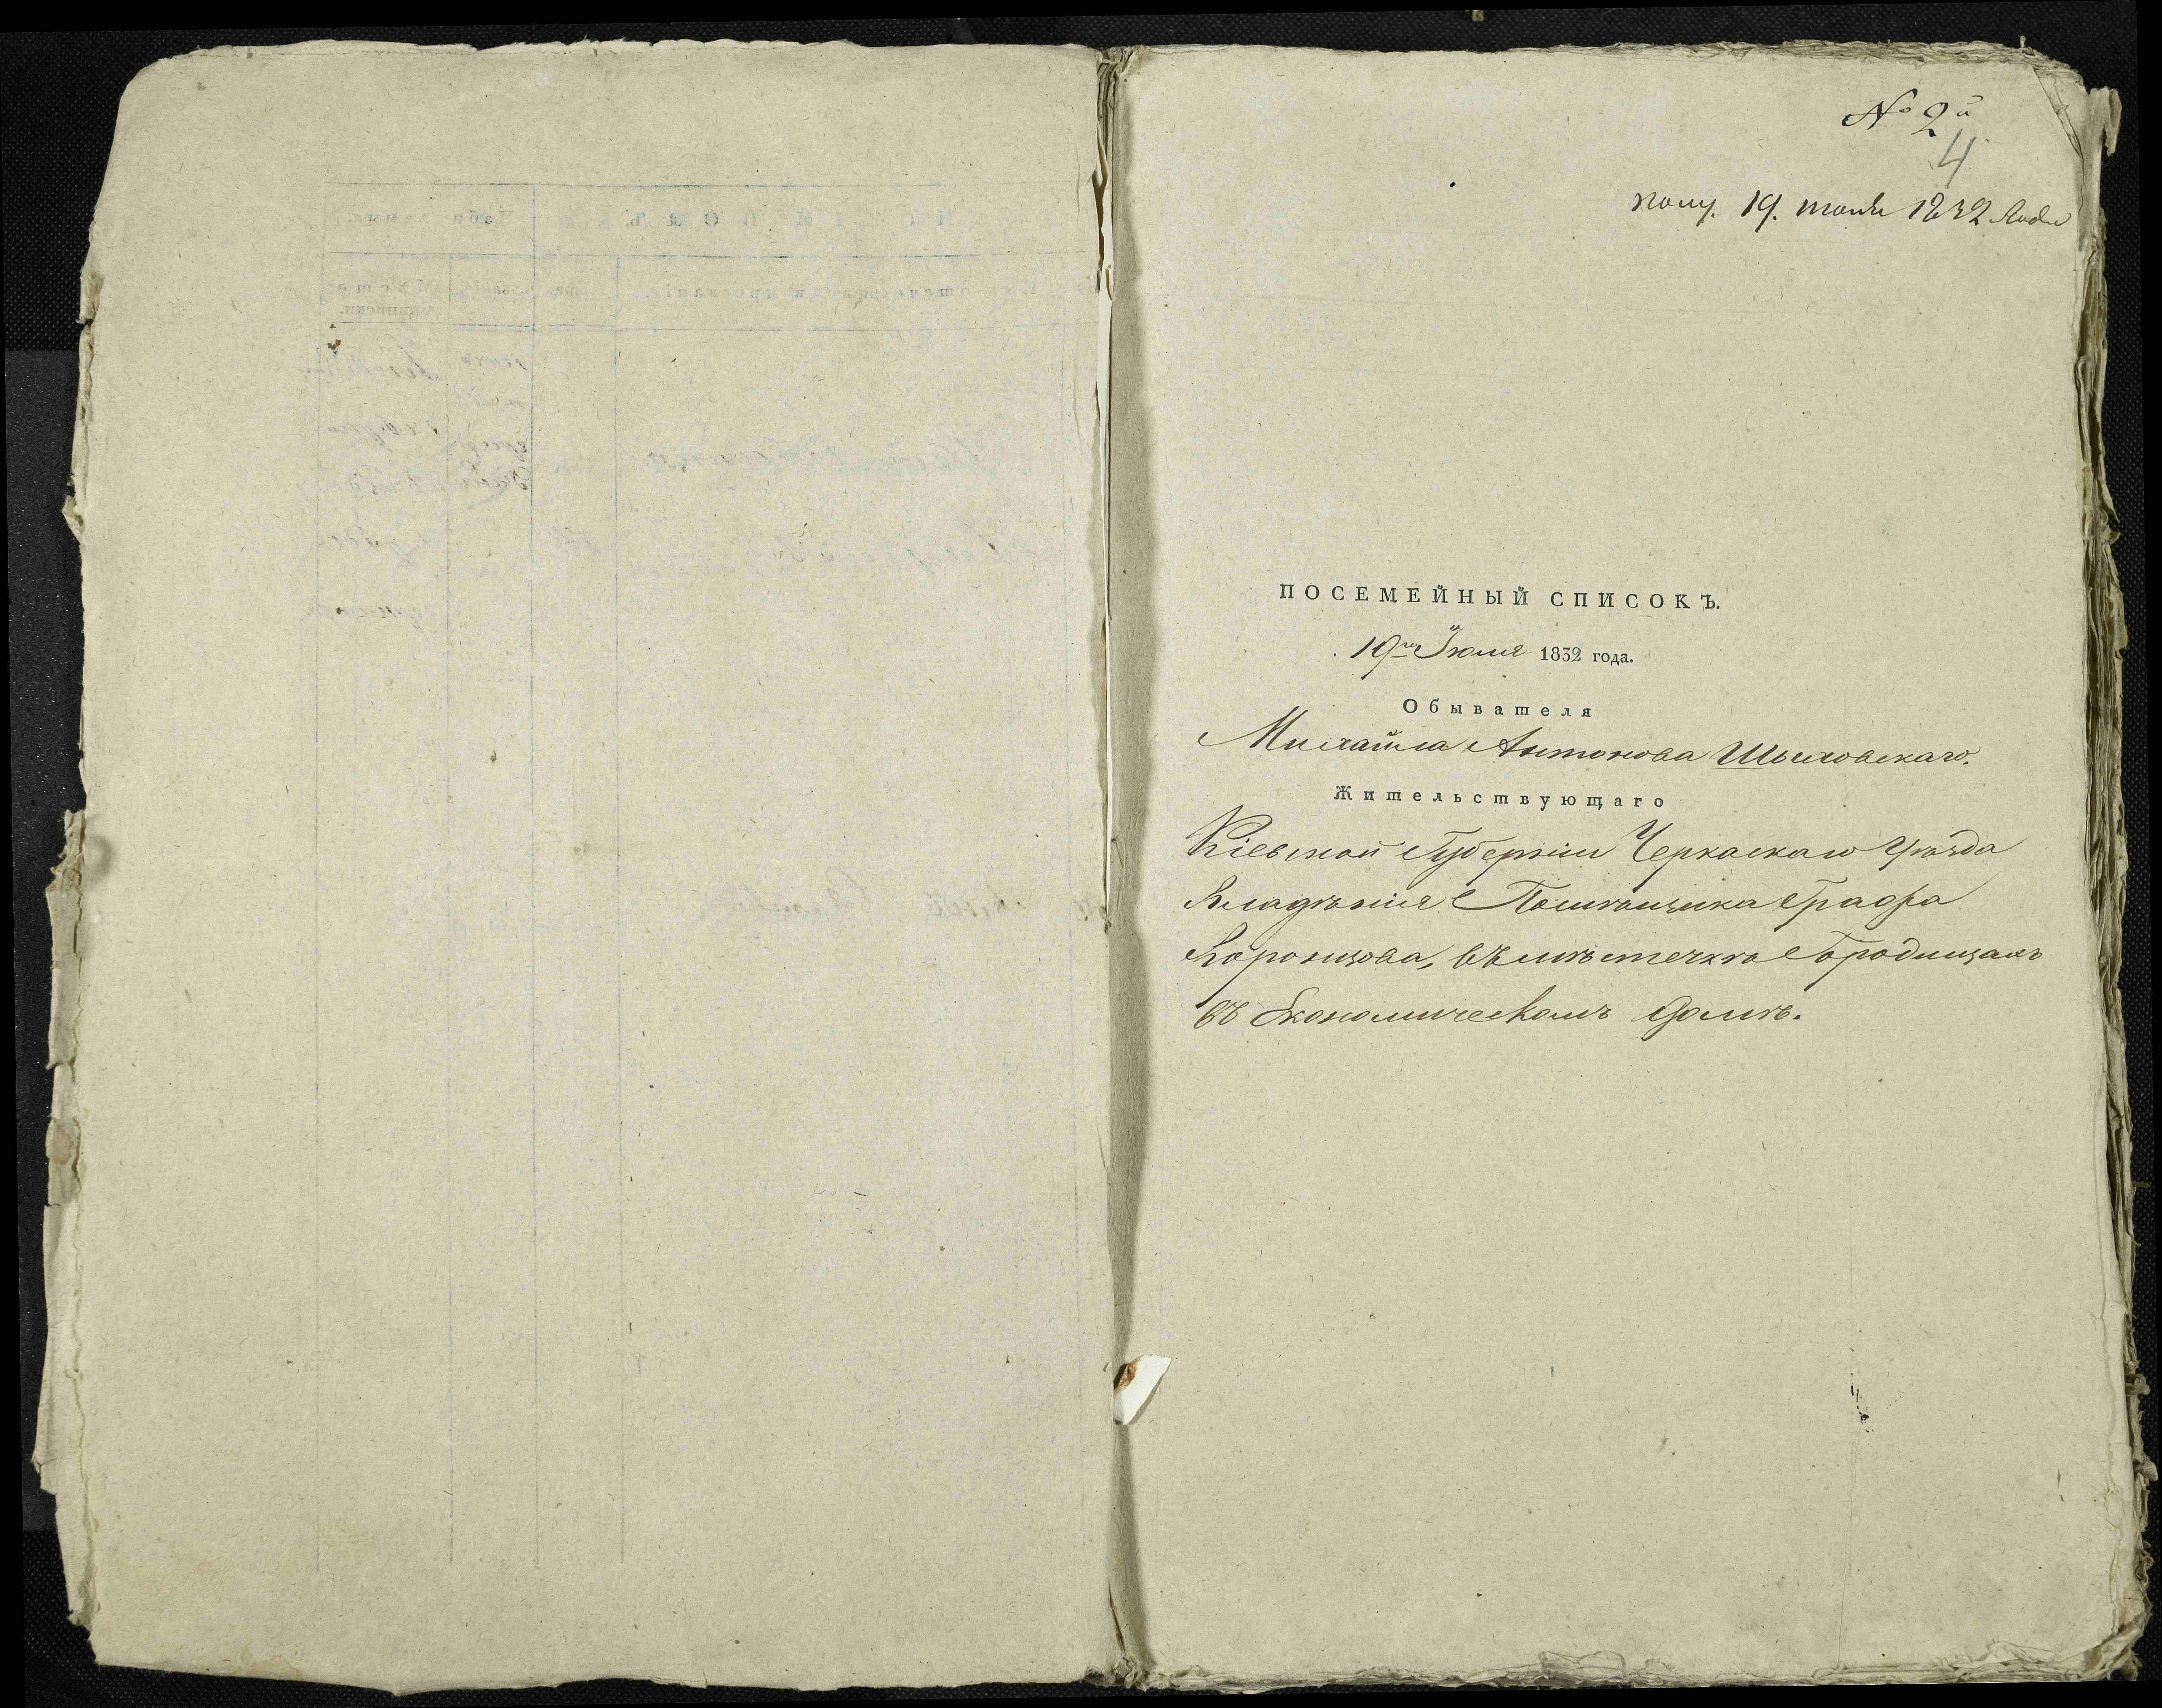 № 2й
4
полу. 19. Июля 1832 Года
ПОСЕМЕЙНЫЙ СПИСОКЪ.
19го Іюля 1832 года.
Обывателя
Михайла Антонова Шыховскаго.
Жительствующаго
Кіевской Губерніи Черкаскаго Уѣзда
Владѣнія Помѣщика Графа
Воронцова, въ мѣстечкѣ Городищахъ
въ Економическомъ домѣ.